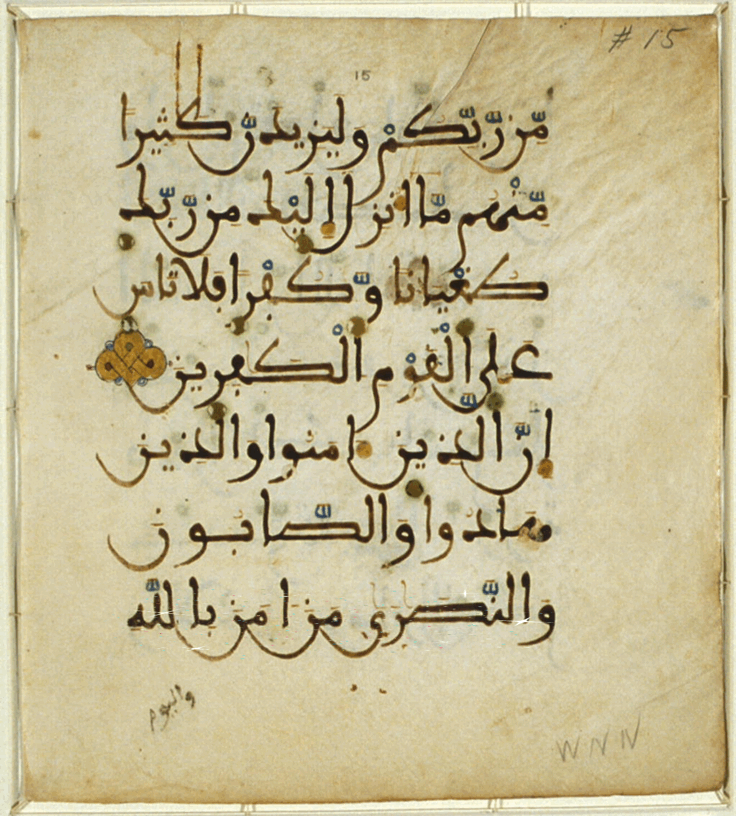 # 15
15
مّن رّبّكمْ وليزيدنّ كثيرا
مّنْهم مّا انزل اليْك من رّبّك
طغْيانا وّكفْرا فلا تاس
على الْقوْم الْكفرين
انّ الّذين امنوا والذين
هادوا والصّابون
والنّصرى من امن باللّه
واليوم
WNN